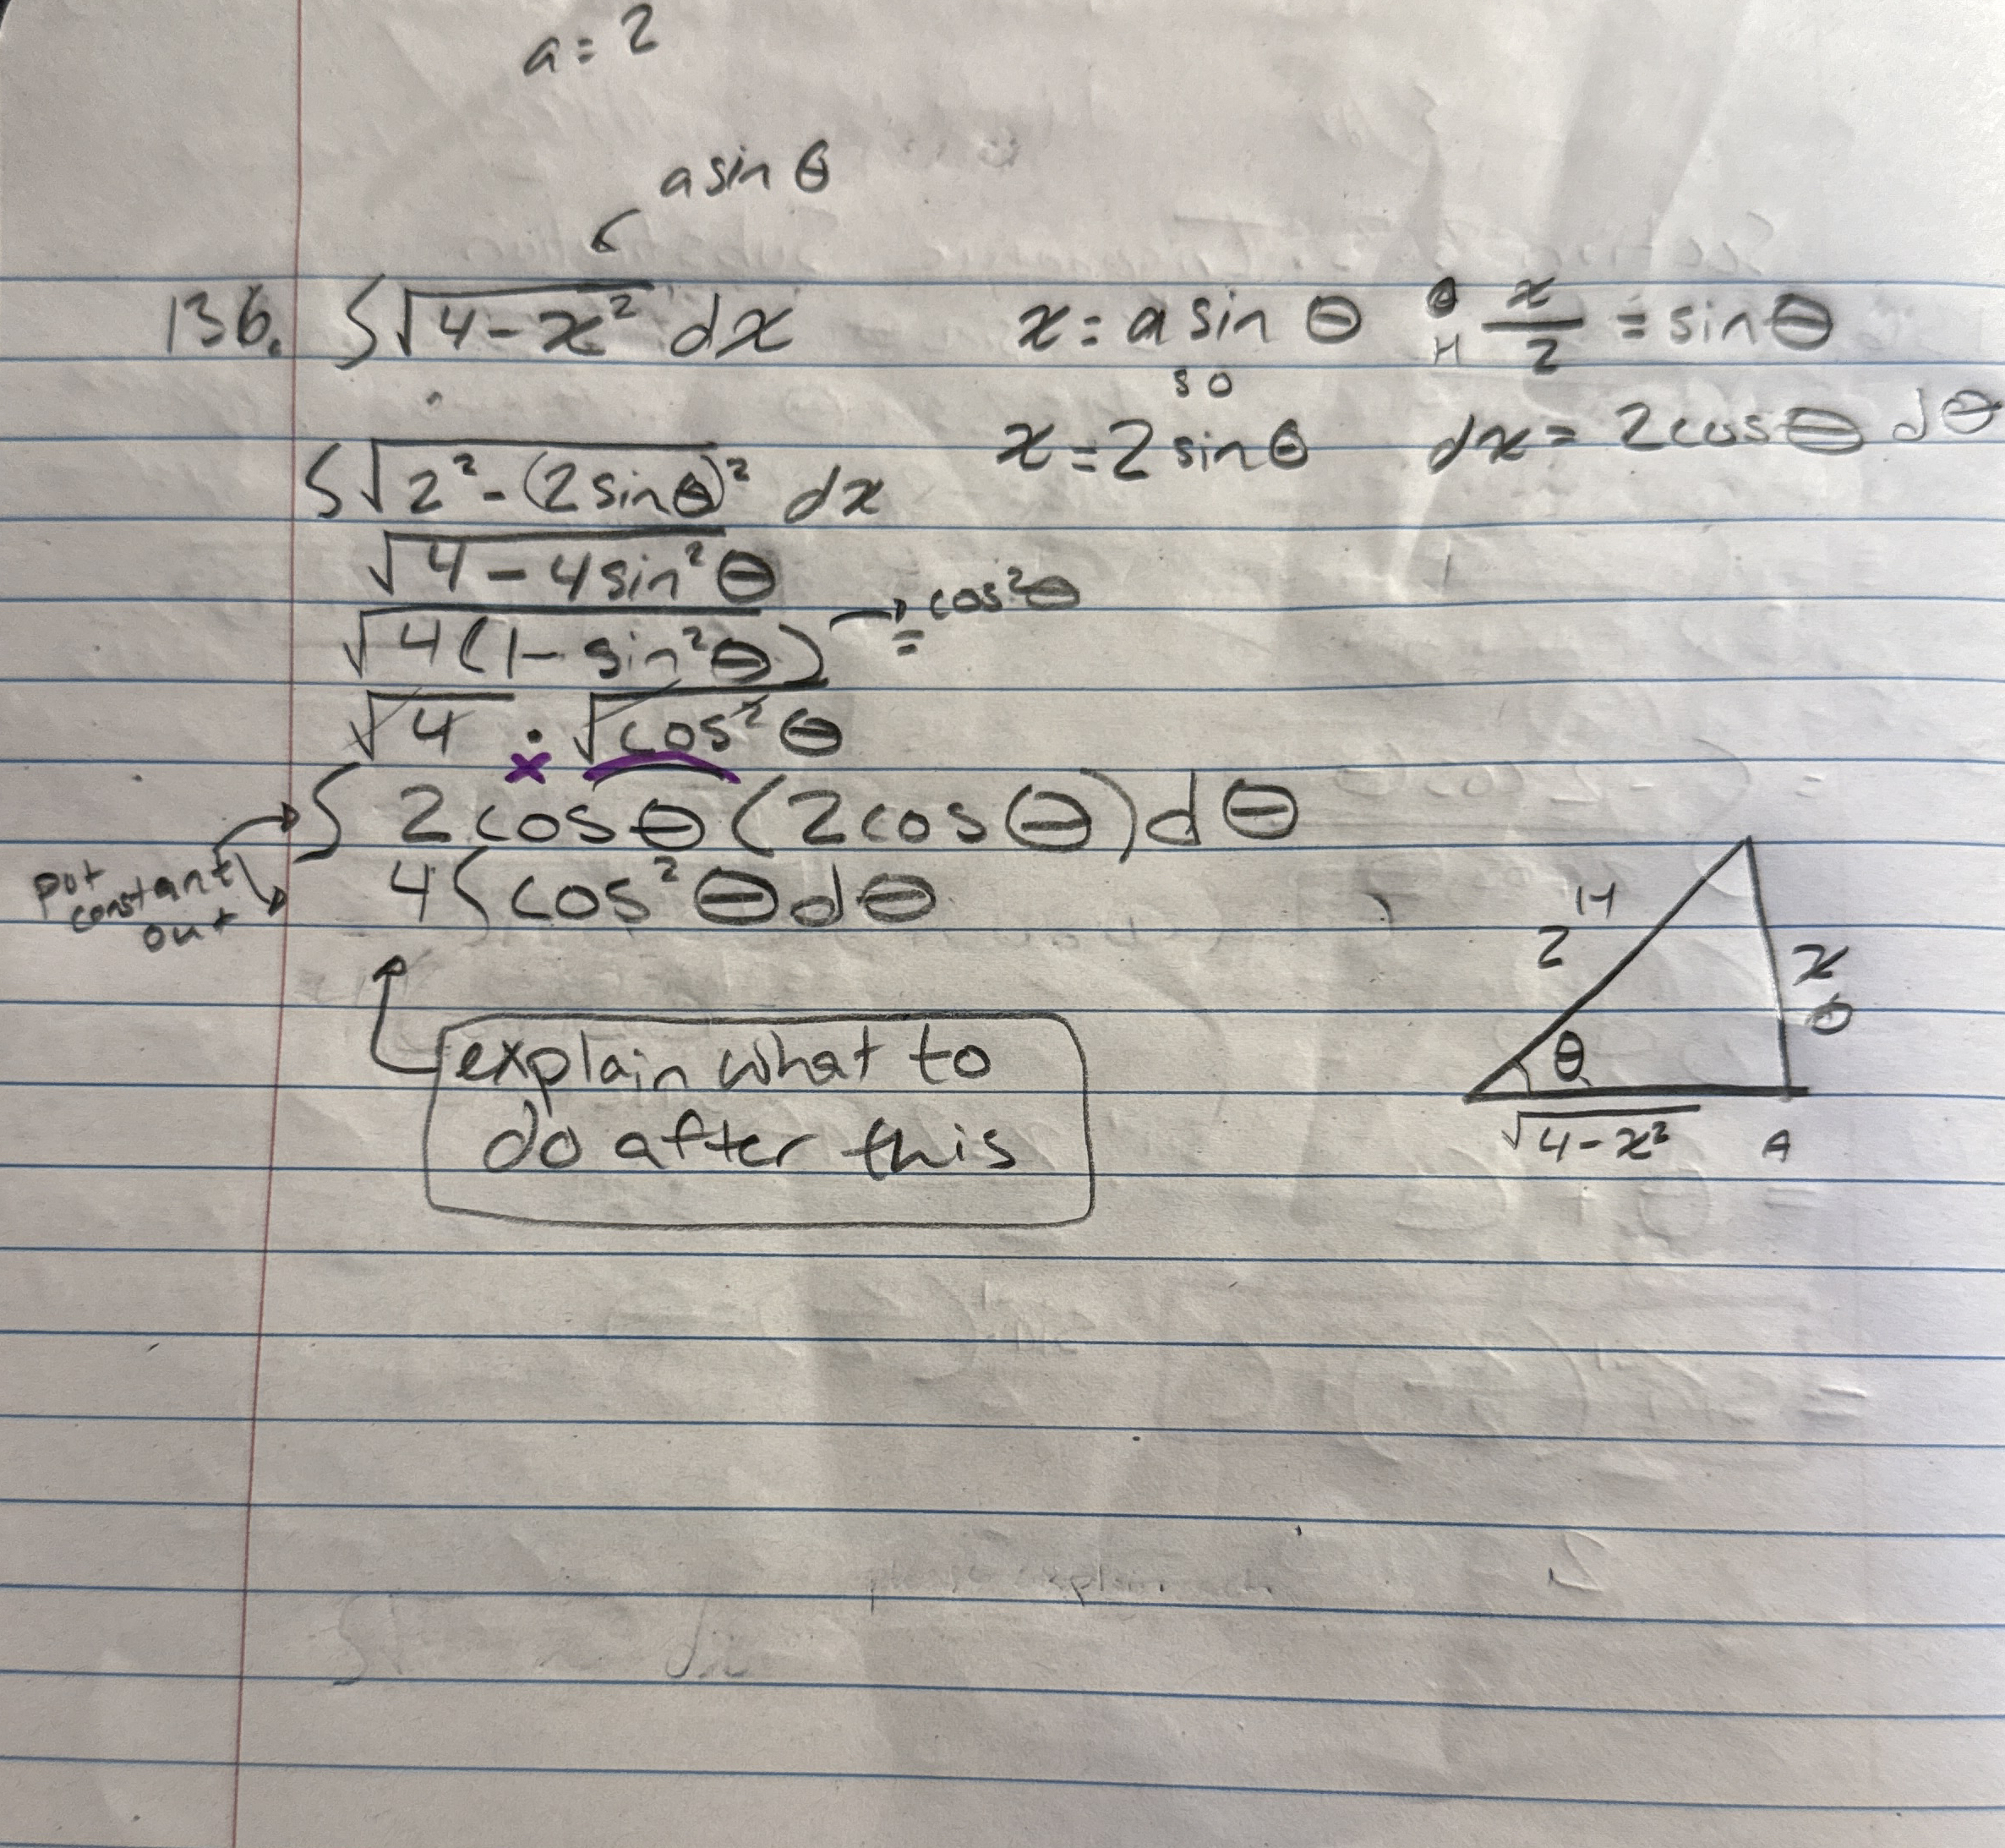 a = 2
a sin θ
136. ∫√4-x² dx
x = a sin θ
O/H x/2 = sin θ
so
x = 2 sin θ
dx = 2cos θ dθ
∫√2² - (2sin θ)² dx
√4 - 4 sin² θ
√4(1 - sin² θ) → = cos² θ
√4 · √cos² θ
x
∫ 2cos θ (2cos θ) dθ
put
constant
out
4∫cos² θ dθ
explain what to
do after this
H
2
x
O
θ
√4-x²
A